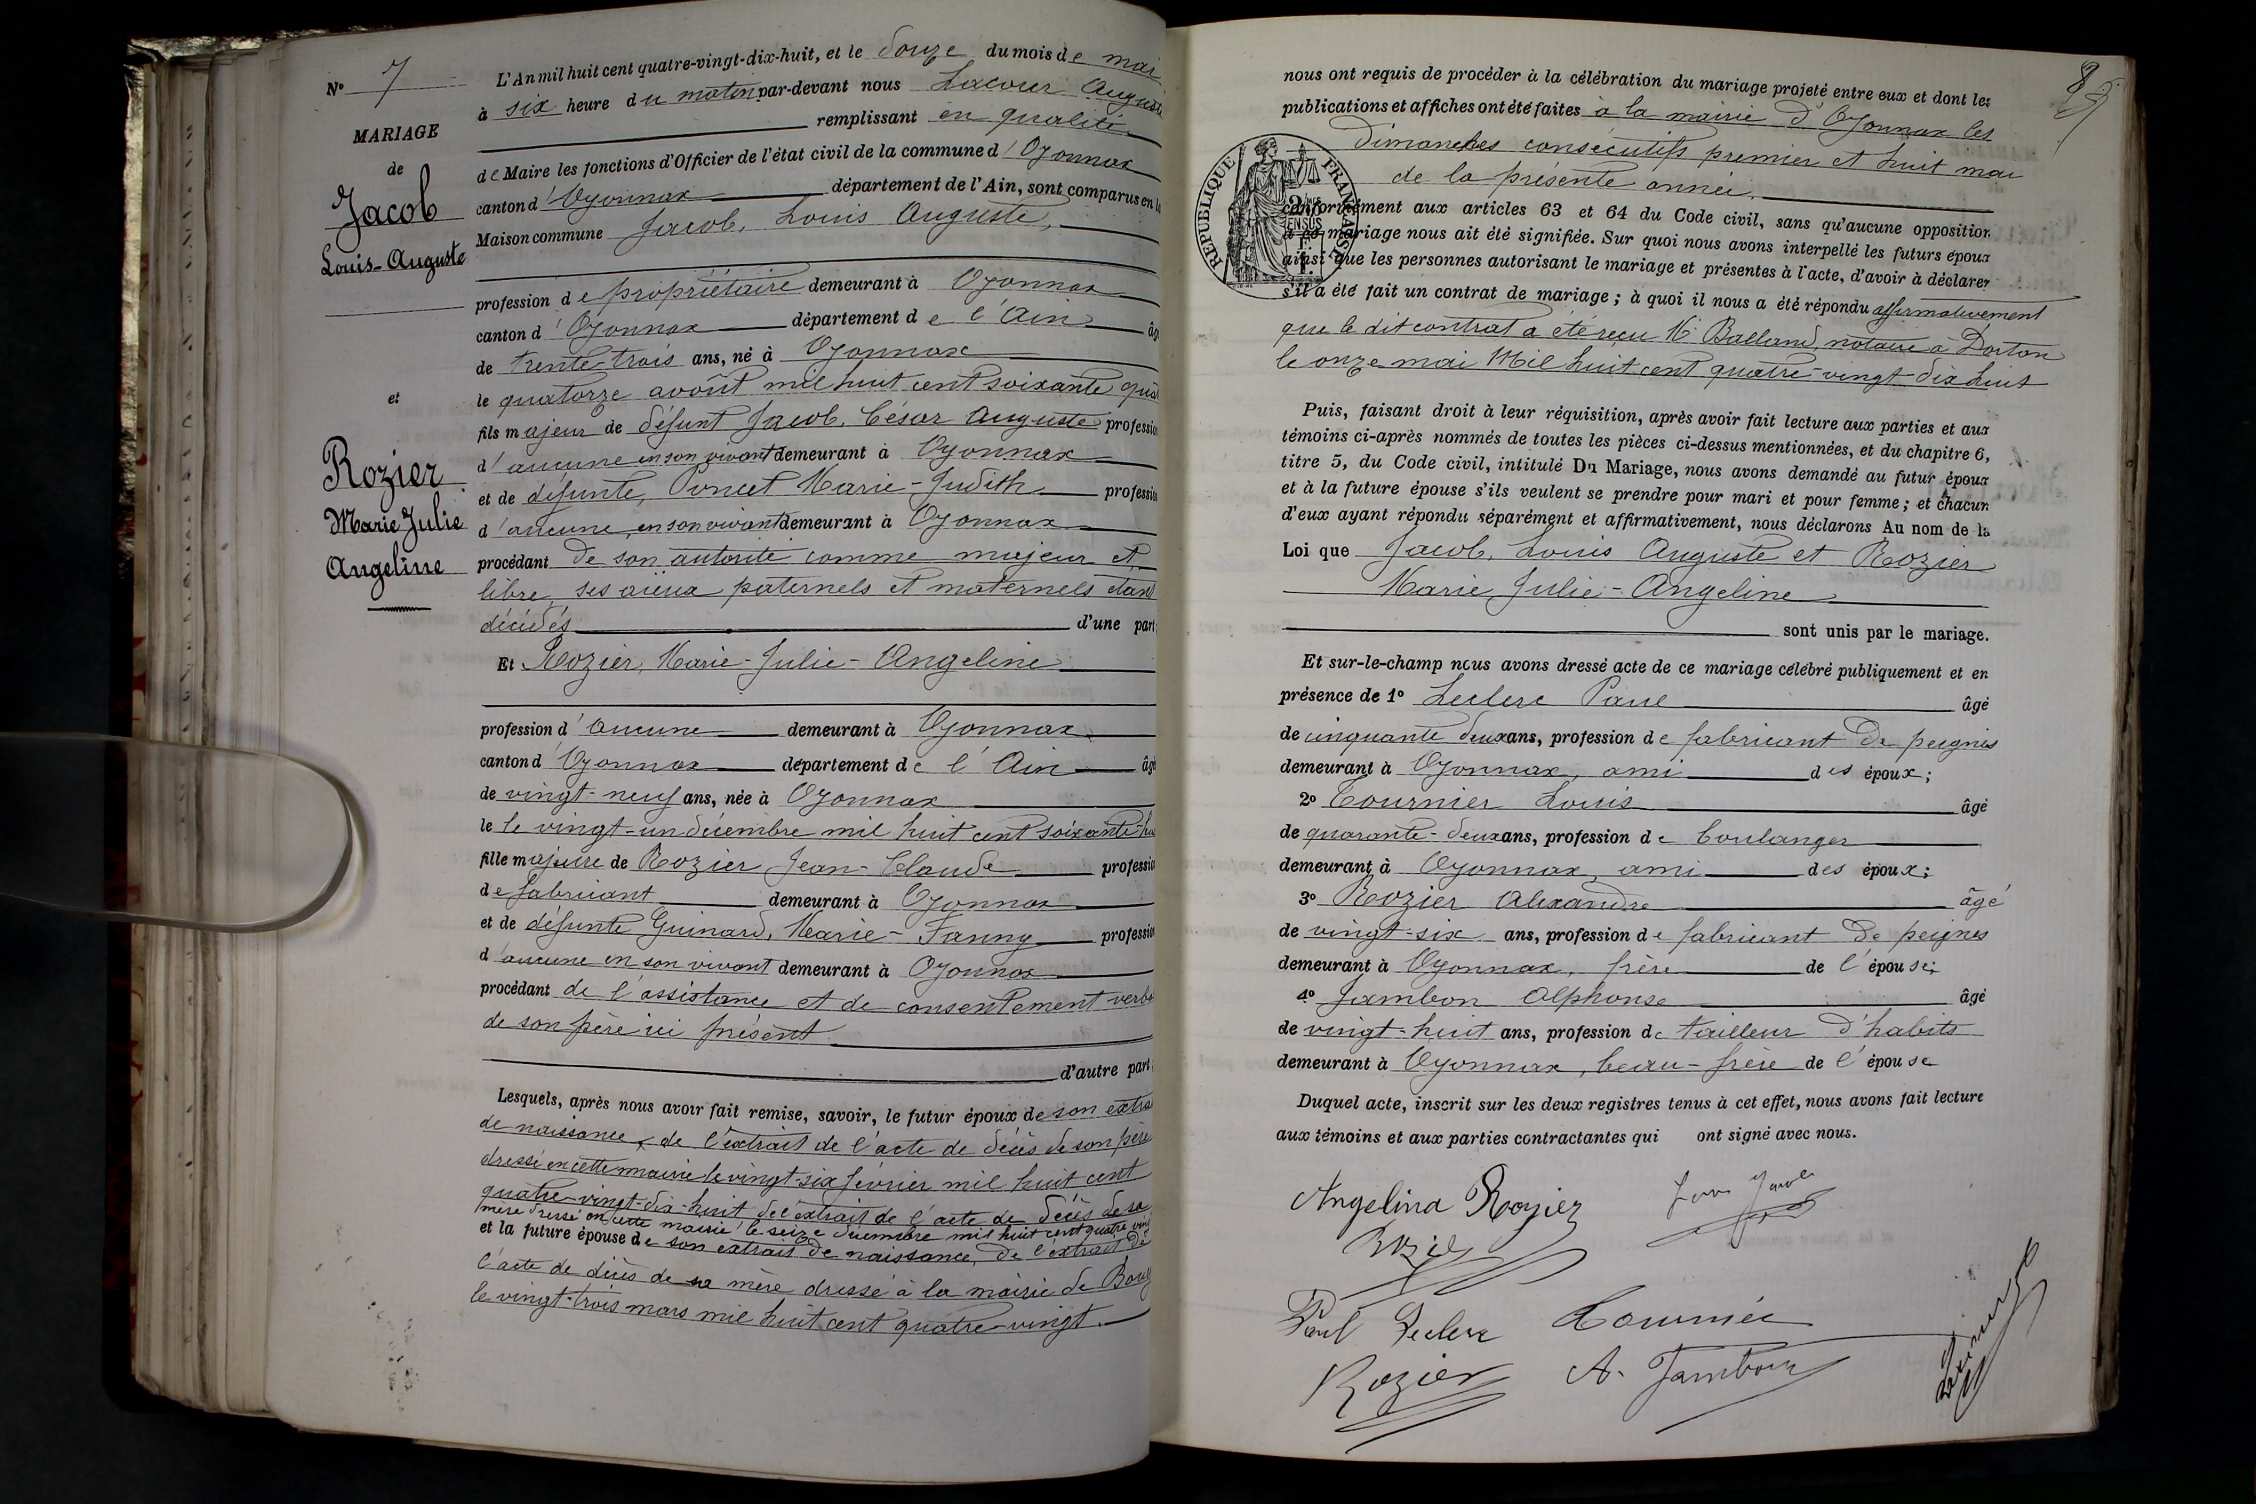 N° 7
MARIAGE
de
Jacob
Louis-Auguste
et
Rozier
Marie Julie
Angeline
L'An mil huit cent quatre-vingt-dix-huit, et le douze du mois de mai
à six heure du matin par-devant nous Lacour Auguste
remplissant en qualité
de Maire les fonctions d'Officier de l'état civil de la commune d'Oyonnax
canton d'Oyonnax département de l'Ain, sont comparus en la
Maison commune Jacob, Louis Auguste,
profession de propriétaire demeurant à Oyonnax
canton d'Oyonnax département de l'Ain âgé
de trente-trois ans, né à Oyonnax
le quatorze avoût mil huit cent soixante quat
fils majeur de défunt Jacob, César Auguste profession
d'aucune en son vivant demeurant à Oyonnax
et de défunte, Poncet Marie-Judith profession
d'aucune, en son vivant demeurant à Oyonnax
procédant de son autorité comme majeur et
libre, ses aïeux paternels et maternels étant
décédés d'une part;
Et Rozier, Marie-Julie-Angeline
profession d'aucune demeurant à Oyonnax
canton d'Oyonnax département de l'Ain âgé
de vingt-neuf ans, née à Oyonnax
le le vingt-un décembre mil huit cent soixante-hu
fille majeure de Rozier Jean-Claude profession
de fabricant demeurant à Oyonnax
et de défunte Guinard, Marie-Fanny profession
d'aucune en son vivant demeurant à Oyonnax
procédant de l'assistance et de consentement verba
de son père ici présent
d'autre part;
Lesquels, après nous avoir fait remise, savoir, le futur époux de son extrait
de naissance, de l'extrait de l'acte de décès de son père
dressé en cette mairie le vingt-six février mil huit cent
quatre-vingt-dix-huit de l'extrait de l'acte de décès de sa
mère dressé en cette mairie le seize décembre mil huit cent quatre vingt
et la future épouse de son extrait de naissance, de l'extrait de
l'acte de décès de sa mère dressé à la mairie de Bourg
le vingt-trois mars mil huit cent quatre-vingt.
nous ont requis de procéder à la célébration du mariage projeté entre eux et dont les
publications et affiches ont été faites à la mairie d'Oyonnax les
dimanches consécutifs premier et huit mai
de la présente année,
RÉPUBLIQUE FRANÇAISE
conformément aux articles 63 et 64 du Code civil, sans qu'aucune opposition
à ce mariage nous ait été signifiée. Sur quoi nous avons interpellé les futurs époux
ainsi que les personnes autorisant le mariage et présentes à l'acte, d'avoir à déclarer
s'il a été fait un contrat de mariage; à quoi il nous a été répondu affirmativement
que le dit contrat a été reçu Me Balland, notaire à Dortan
le onze mai Mil huit cent quatre-vingt-dix huit
Puis, faisant droit à leur réquisition, après avoir fait lecture aux parties et aux
témoins ci-après nommés de toutes les pièces ci-dessus mentionnées, et du chapitre 6,
titre 5, du Code civil, intitulé Du Mariage, nous avons demandé au futur époux
et à la future épouse s'ils veulent se prendre pour mari et pour femme; et chacun
d'eux ayant répondu séparément et affirmativement, nous déclarons Au nom de la
Loi que Jacob, Louis Auguste et Rozier
Marie Julie-Angeline
sont unis par le mariage.
Et sur-le-champ nous avons dressé acte de ce mariage célébré publiquement et en
présence de 1° Leclerc Paul âgé
de cinquante deux ans, profession de fabricant de peignes
demeurant à Oyonnax, ami des époux;
2° Tournier Louis âgé
de quarante-deux ans, profession de boulanger
demeurant à Oyonnax, ami des époux;
3° Rozier Alexandre âgé
de vingt-six ans, profession de fabricant de peignes
demeurant à Oyonnax, frère de l'épouse;
4° Jambon Alphonse âgé
de vingt-huit ans, profession de tailleur d'habits
demeurant à Oyonnax, beau-frère de l'épouse
Duquel acte, inscrit sur les deux registres tenus à cet effet, nous avons fait lecture
aux témoins et aux parties contractantes qui ont signé avec nous.
Angelina Rozier Louis Jacob
Rozier
Paul Leclerc Tournier
Rozier A. Jambon